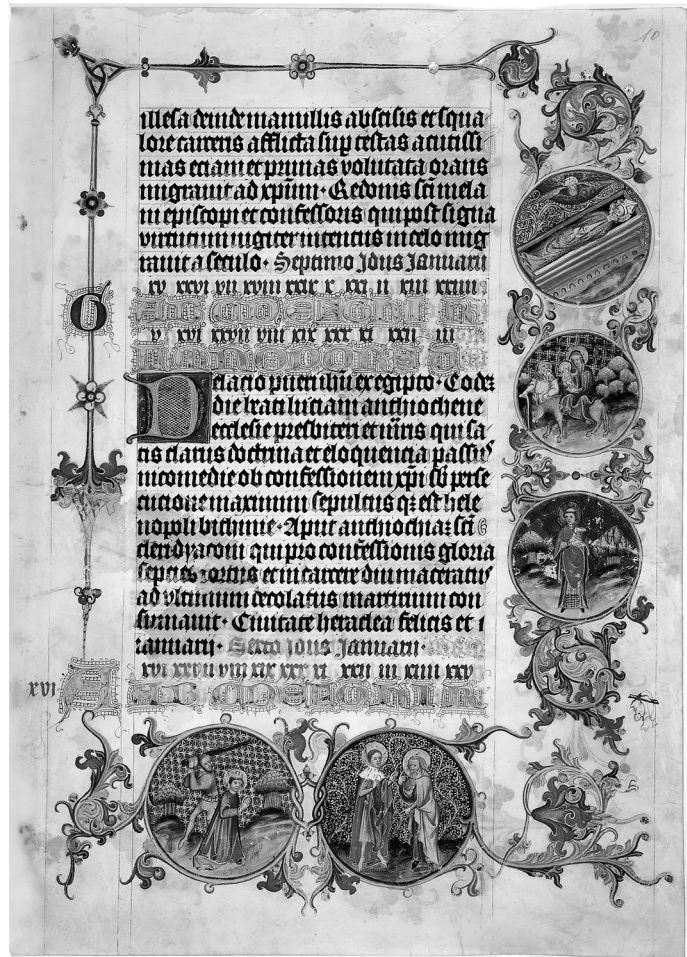 10
illesa deinde mamillis abscisis et squa
lore carceris afflicta sup testas acutissi
mas eciam et prunas volutata orans
migrauit ad xpm · Redonis sci mela
ni episcopi et confessoris qui post signa
virtutum iugiter intentus in celo mig
rauit a seculo · Septimo Idus Ianuarii
xv xxvi vii xviii xxix x xxi ii xiii xxiiii
G
v xvi xxvii viii xix xxx xi xxii iii
Delacio pueri ihu ex egipto · Codez
die beati luciani anthiochene
ecclesie presbiteri et mris qui sa
tis clarus doctrina et eloquencia passus
nicomedie ob confessionem xpi sb perse
cucione maximini sepultus qz est hele
nopoli bithinie · Aput anthiochiaz sci
cleri dyaconi qui pro confessionis gloria
septies tortus et in carcere diu maceratus
ad vltimum decolatus martirium con
sumauit · Ciuitate heraclea felicis et i
ianuarii · Sexto idus Ianuarii ·
xvi xxvii viii xix xxx xi xxii iii xiiii xxv
xvi